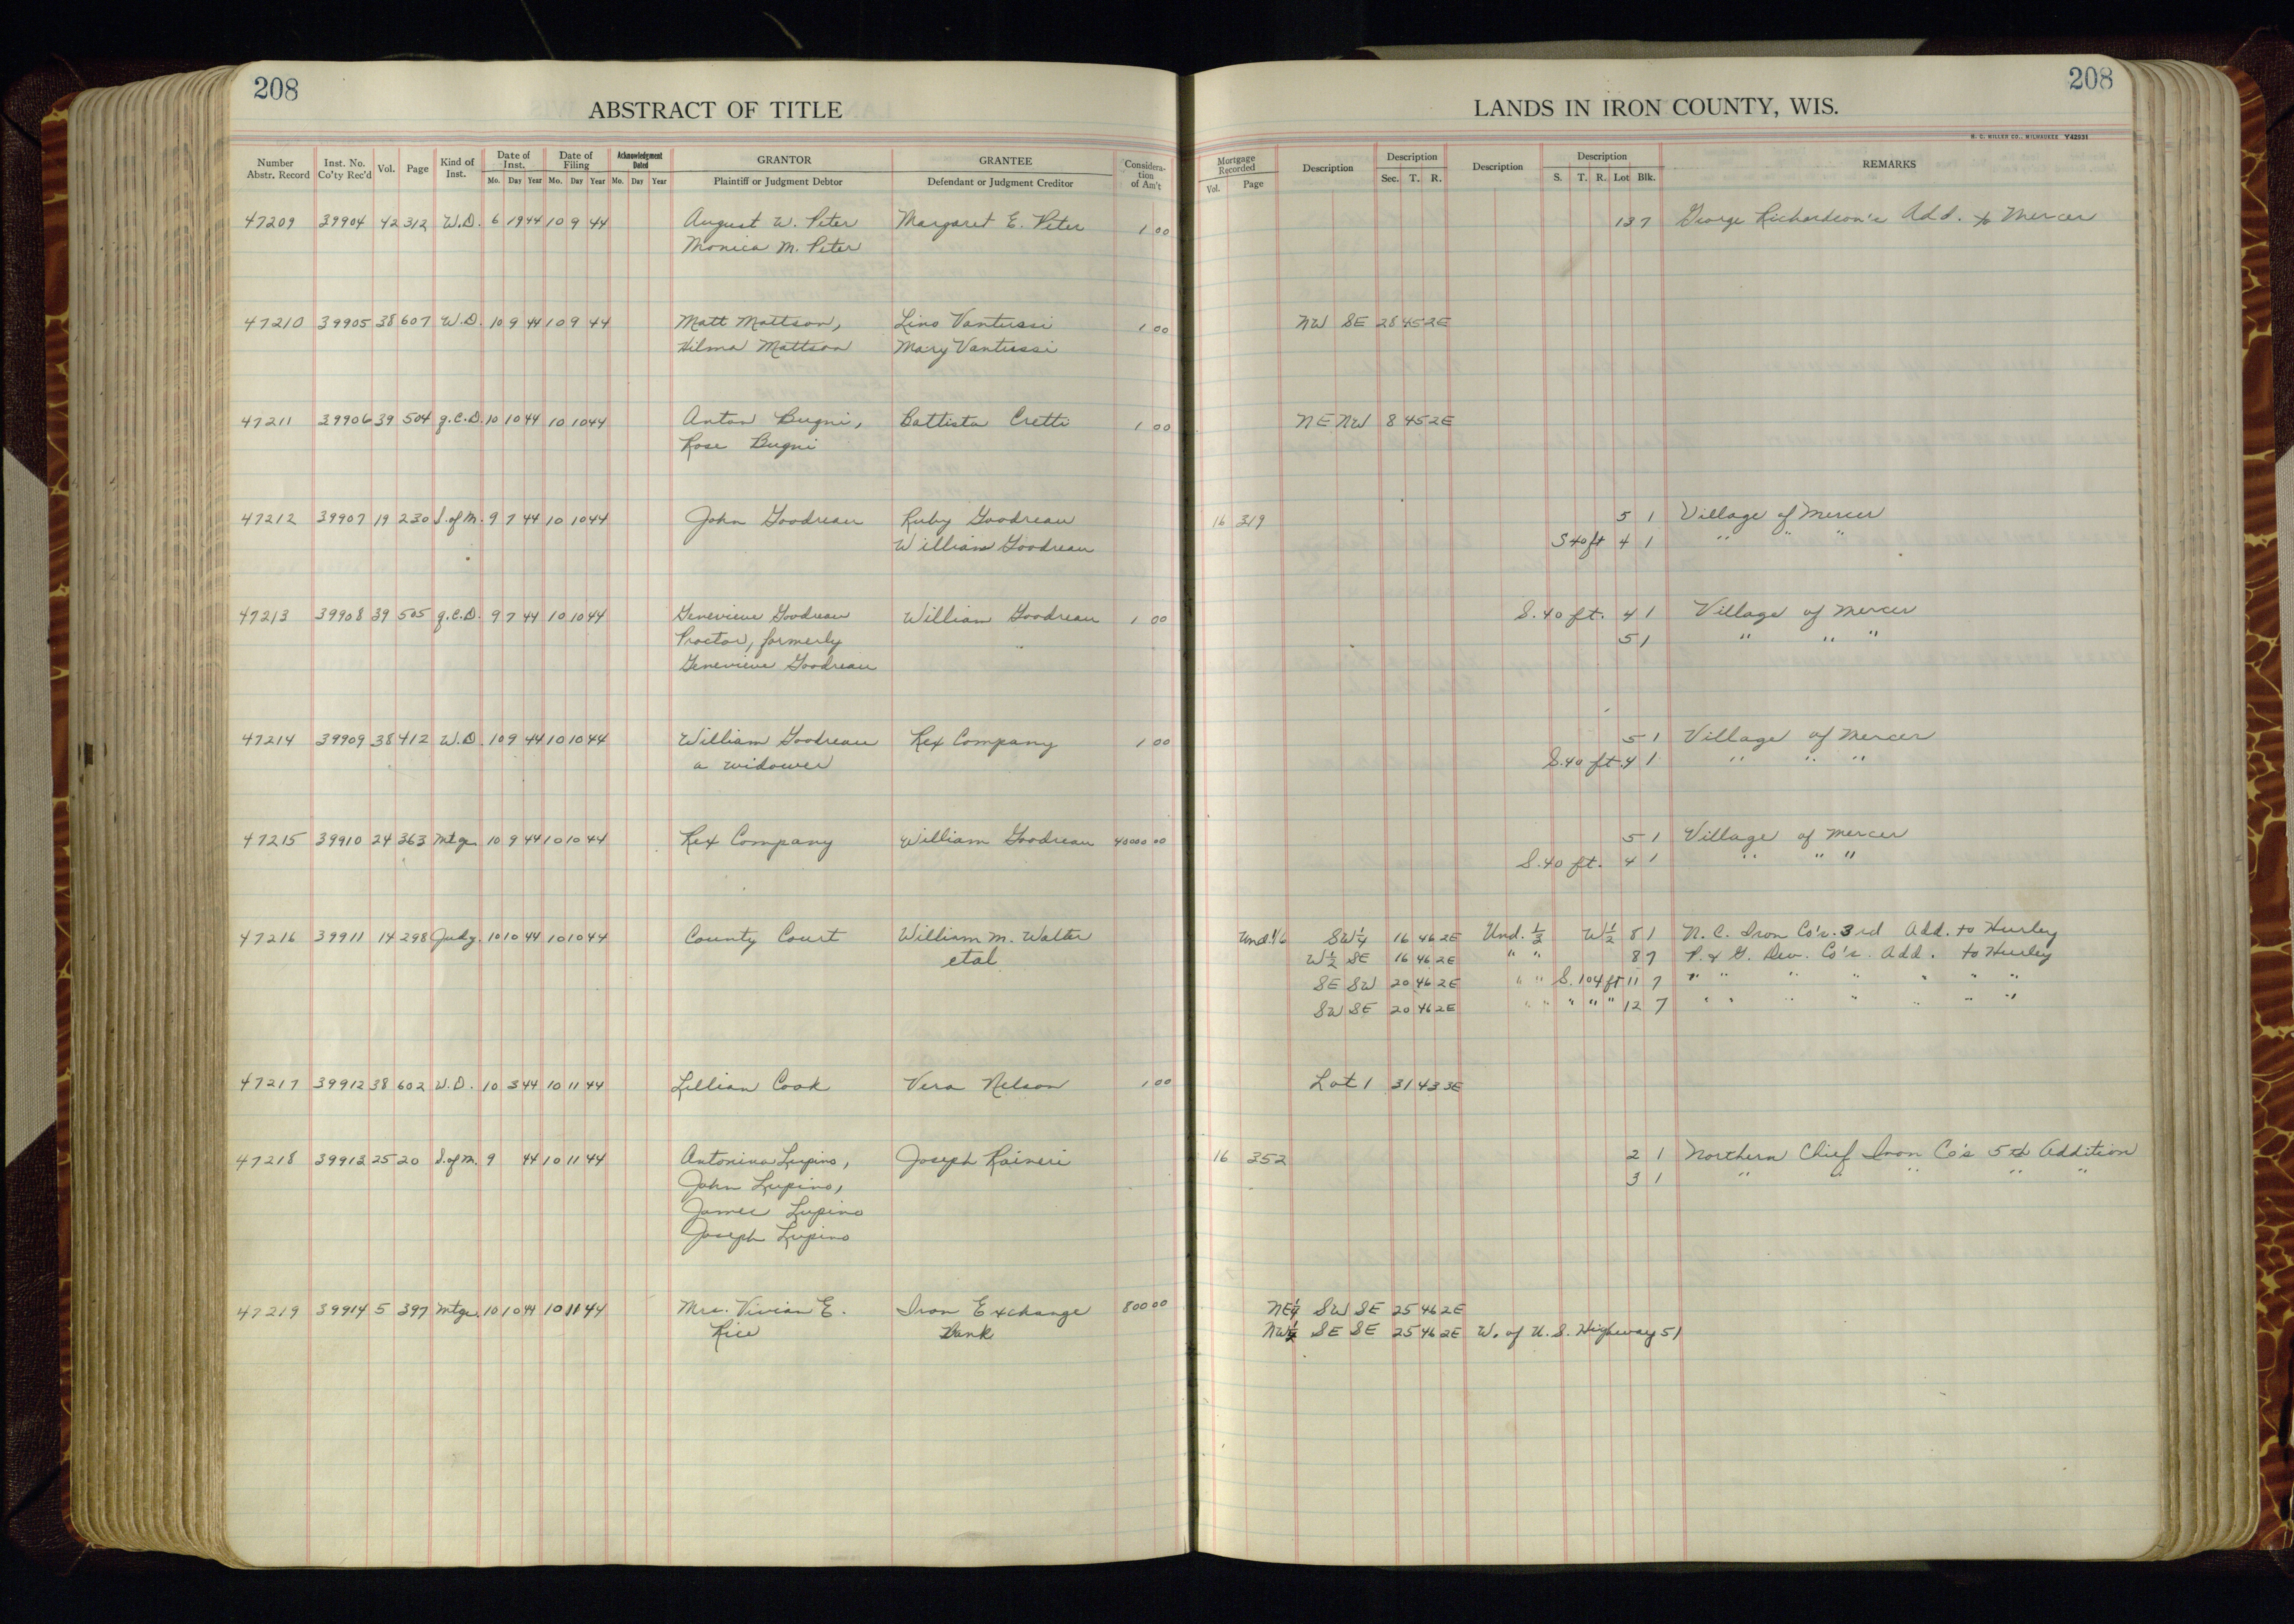 208
ABSTRACT OF TITLE
Number Abstr. Record Inst. No. Co'ty Rec'd Vol. Page Kind of Inst. Date of Inst. Mo. Day Year Date of Filing Mo. Day Year Acknowledgment Dated Mo. Day Year GRANTOR Plaintiff or Judgment Debtor GRANTEE Defendant or Judgment Creditor Considera-tion of Am't
47209 39904 42 312 W.D. 6 19 44 10 9 44 August W. Peter Margaret E. Peter 1 00
Monica M. Peter
47210 39905 38 607 W.D. 10 9 44 10 9 44 Matt Mattson, Lino Vantussi 1 00
Hilma Mattson Mary Vantussi
47211 39906 39 504 q.C.D. 10 10 44 10 10 44 Anton Bugni, Battista Cretti 1 00
Rose Bugni
47212 39907 19 230 S.of M. 9 7 44 10 10 44 John Goodreau Ruby Goodreau
William Goodreau
47213 39908 39 505 q.C.D. 9 7 44 10 10 44 Genevieve Goodreau William Goodreau 1 00
Proctor, formerly
Genevieve Goodreau
47214 39909 38 412 W.D. 10 9 44 10 10 44 William Goodreau Rex Company 1 00
a widower
47215 39910 24 363 Mtge. 10 9 44 10 10 44 Rex Company William Goodreau 40000 00
47216 39911 14 298 Judg. 10 10 44 10 10 44 County Court William M. Walter
etal
47217 39912 38 602 W.D. 10 3 44 10 11 44 Lillian Cook Vera Nelson 1 00
47218 39913 25 20 S.of M. 9 44 10 11 44 Antonina Lupino, Joseph Raineri
John Lupino,
James Lupino
Joseph Lupino
47219 39914 5 397 Mtge. 10 10 44 10 11 44 Mrs. Vivian E. Iron Exchange 800 00
Rice Bank
208
LANDS IN IRON COUNTY, WIS.
H. C. MILLER CO., MILWAUKEE Y42931
Mortgage Recorded Vol. Page Description Description Sec. T. R. Description Description S. T. R. Lot Blk. REMARKS
13 7 George Richardson's Add. to Mercer
NW SE 28 45 2E
NE NW 8 45 2E
16 319 5 1 Village of Mercer
S 40 ft 4 1 " " "
S. 40 ft. 4 1 Village of Mercer
5 1 " " "
5 1 Village of Mercer
S. 40 ft. 4 1 " " "
5 1 Village of Mercer
S. 40 ft. 4 1 " " "
Und. 1/6 SW¼ 16 46 2E Und. ⅓ W½ 8 1 N. C. Iron Co's. 3rd Add. to Hurley
W½ SE 16 46 2E " " 8 7 P. & G. Dev. Co's. Add. to Hurley
SE SW 20 46 2E " " S. 104 ft 11 7 " " " " " " "
SW SE 20 46 2E " " " " " 12 7 " " " " " " "
Lot 1 31 43 3E
16 352 2 1 Northern Chief Iron Co's 5th Addition
3 1 " " " " "
NE¼ SW SE 25 46 2E
NW¼ SE SE 25 46 2E W. of U. S. Highway 51